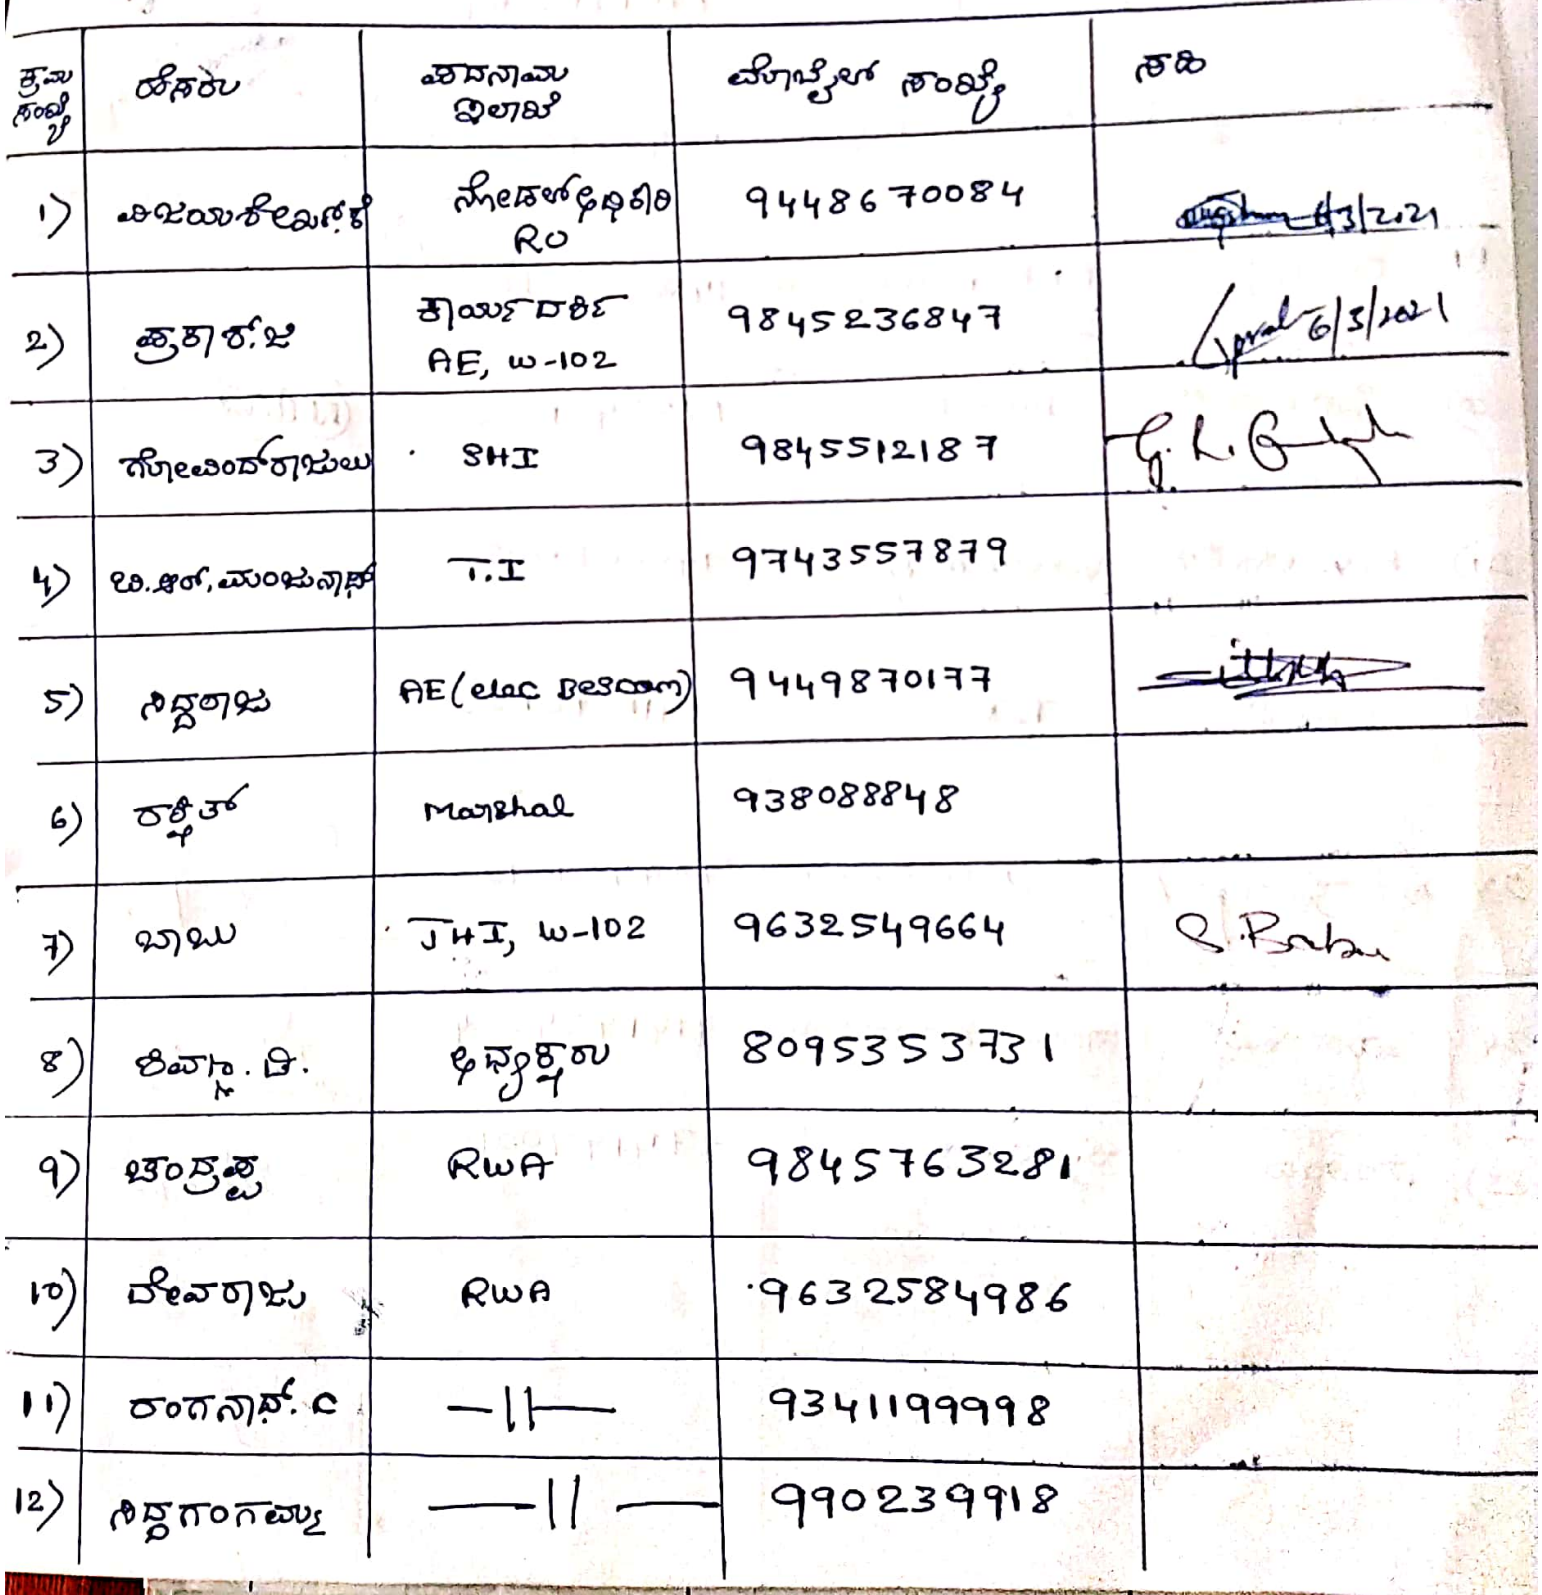 ಕ್ರಮ ಸಂಖ್ಯೆ ಹೆಸರು ಪದನಾಮ ಇಲಾಖೆ ಮೊಬೈಲ್ ಸಂಖ್ಯೆ ಸಹಿ
1) ವಿಜಯಶೇಖರ್.ಕೆ ನೋಡಲ್ ಅಧಿಕಾರಿ RO 9448670084 6/3/2021
2) ಪ್ರಕಾಶ್.ಜಿ ಕಾರ್ಯದರ್ಶಿ AE, W-102 9845236847 6/3/2021
3) ಗೋವಿಂದ್‌ರಾಜುಲು SHI 9845512187
4) ಬಿ.ಆರ್.ಮಂಜುನಾಥ್ T.I 9743557879
5) ಸಿದ್ದರಾಜು AE (elec 9449870177
6) ರಕ್ಷಿತ್ Marshal 938088848
7) ಬಾಬು JHI, W-102 9632549664 S. Babu
8) ಶಿವಣ್ಣ. ಡಿ. ಅಧ್ಯಕ್ಷರು 8095353731
9) ಚಂದ್ರಪ್ಪ RWA 9845763281
10) ದೇವರಾಜು RWA 9632584986
11) ರಂಗನಾಥ್. C —11— 9341199998
12) ಸಿದ್ದಗಂಗಮ್ಮ —11— 990239918